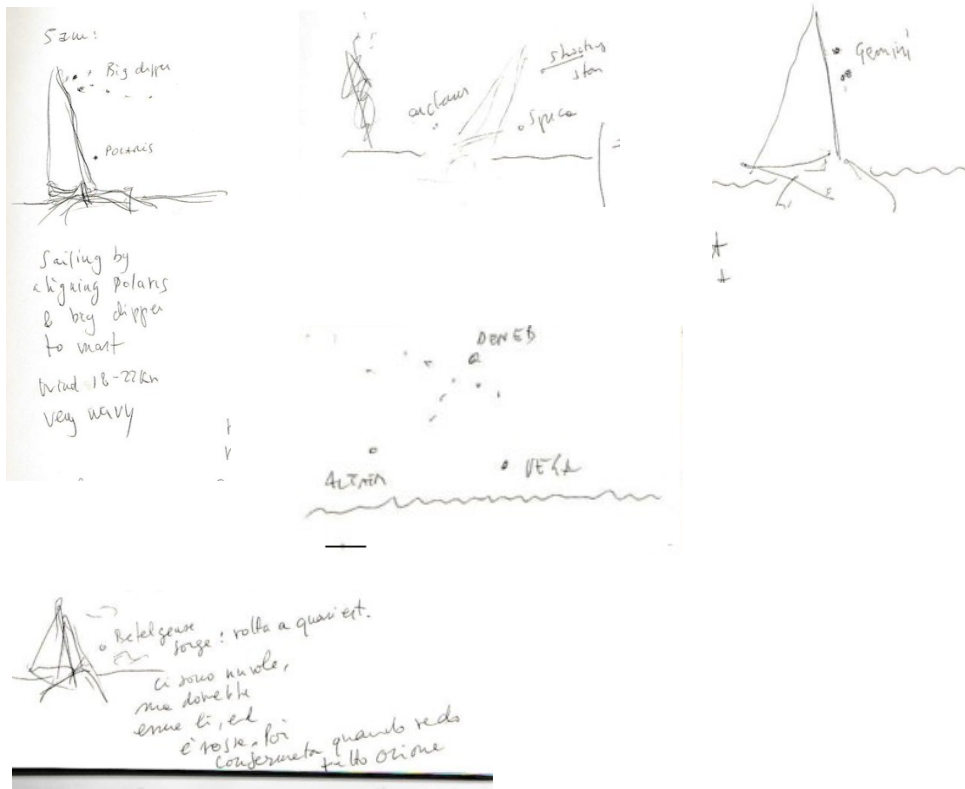 5am:
Big dipper
Polaris
Sailing by
aligning Polaris
& big dipper
to mast
Wind 18-22kn
very wavy
shooting
star
Spica
Gemini
DENEB
ALTAIR
VEGA
Betelgeuse
sorge: rotta a quasi est.
ci sono nuvole,
ma dovrebbe
essere lì, ed
è rossa. Poi
confermata quando vedo
tutto Orione